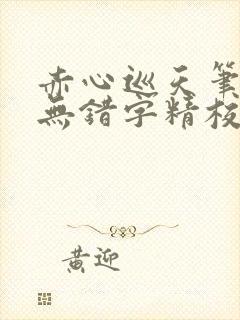 赤心巡天筆
無錯字精校
黄迎